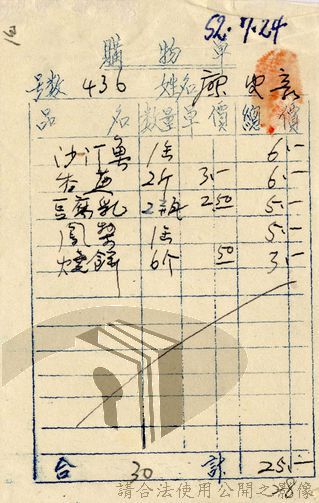 52.7.24
購物單
号數 436 姓名 康
品名 數量 單價 總價
沙汀魚 1缶 6.-
2个 3.- 6.-
豆腐乳 2瓶 2.50 5.-
鳳梨 1缶 5.-
燒餅 6个 .50 3.-
合 30 計 25.-
28
請合法使用公開之影像